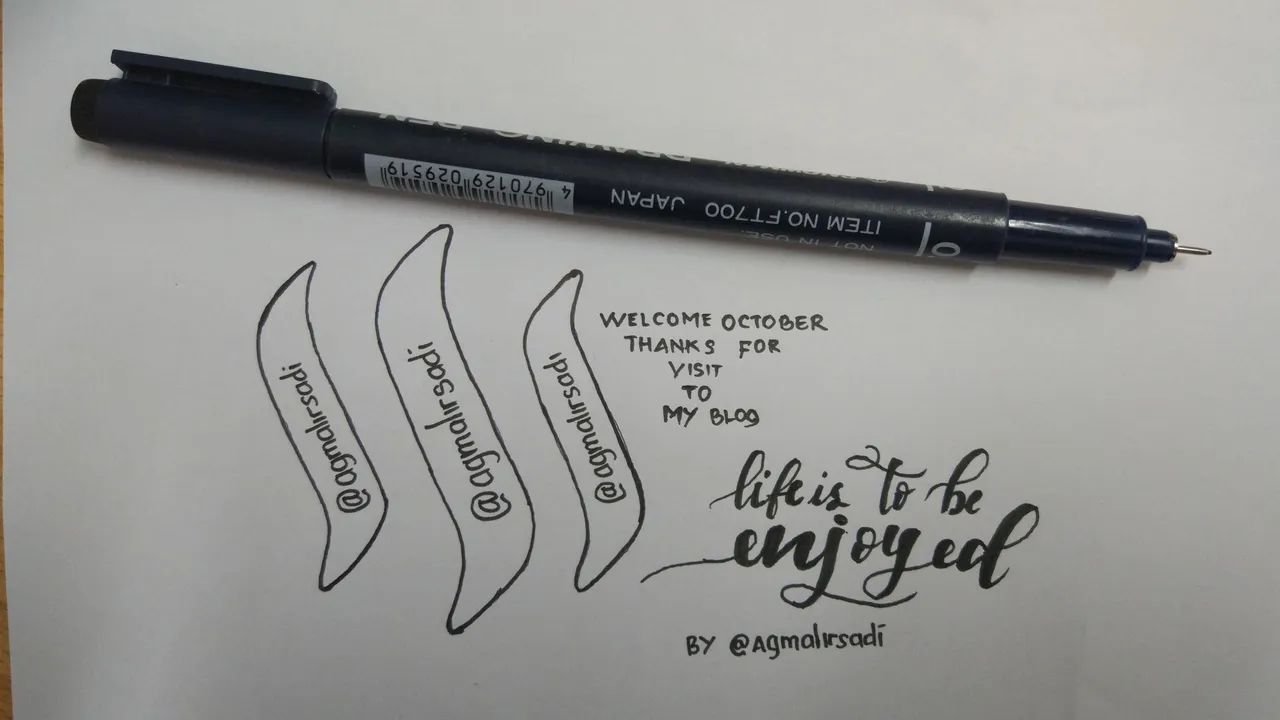 DRAWING PEN
4 970129 029519
ITEM NO.FT700 JAPAN
NOT IN USE.
@agmalirsadi
@agmalirsadi
@agmalirsadi
WELCOME OCTOBER
THANKS FOR
VISIT
TO
MY BLOG
life is to be
enjoyed
BY @Agmalirsadi